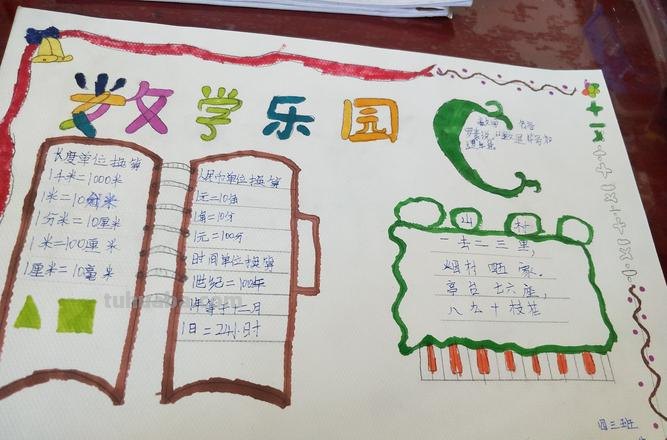 数学乐园
长度单位换算
1千米=1000米
1米=10分米
1分米=10厘米
1米=100厘米
1厘米=10毫米
人民币单位换算
1元=10角
1角=10分
1元=100分
时间单位换算
1世纪=100年
1年等于十二月
1日=24小时
数学
山村
一去二三里,
烟村四家.
亭台六七座,
八九十枝花
四三班
tuhuaba.com